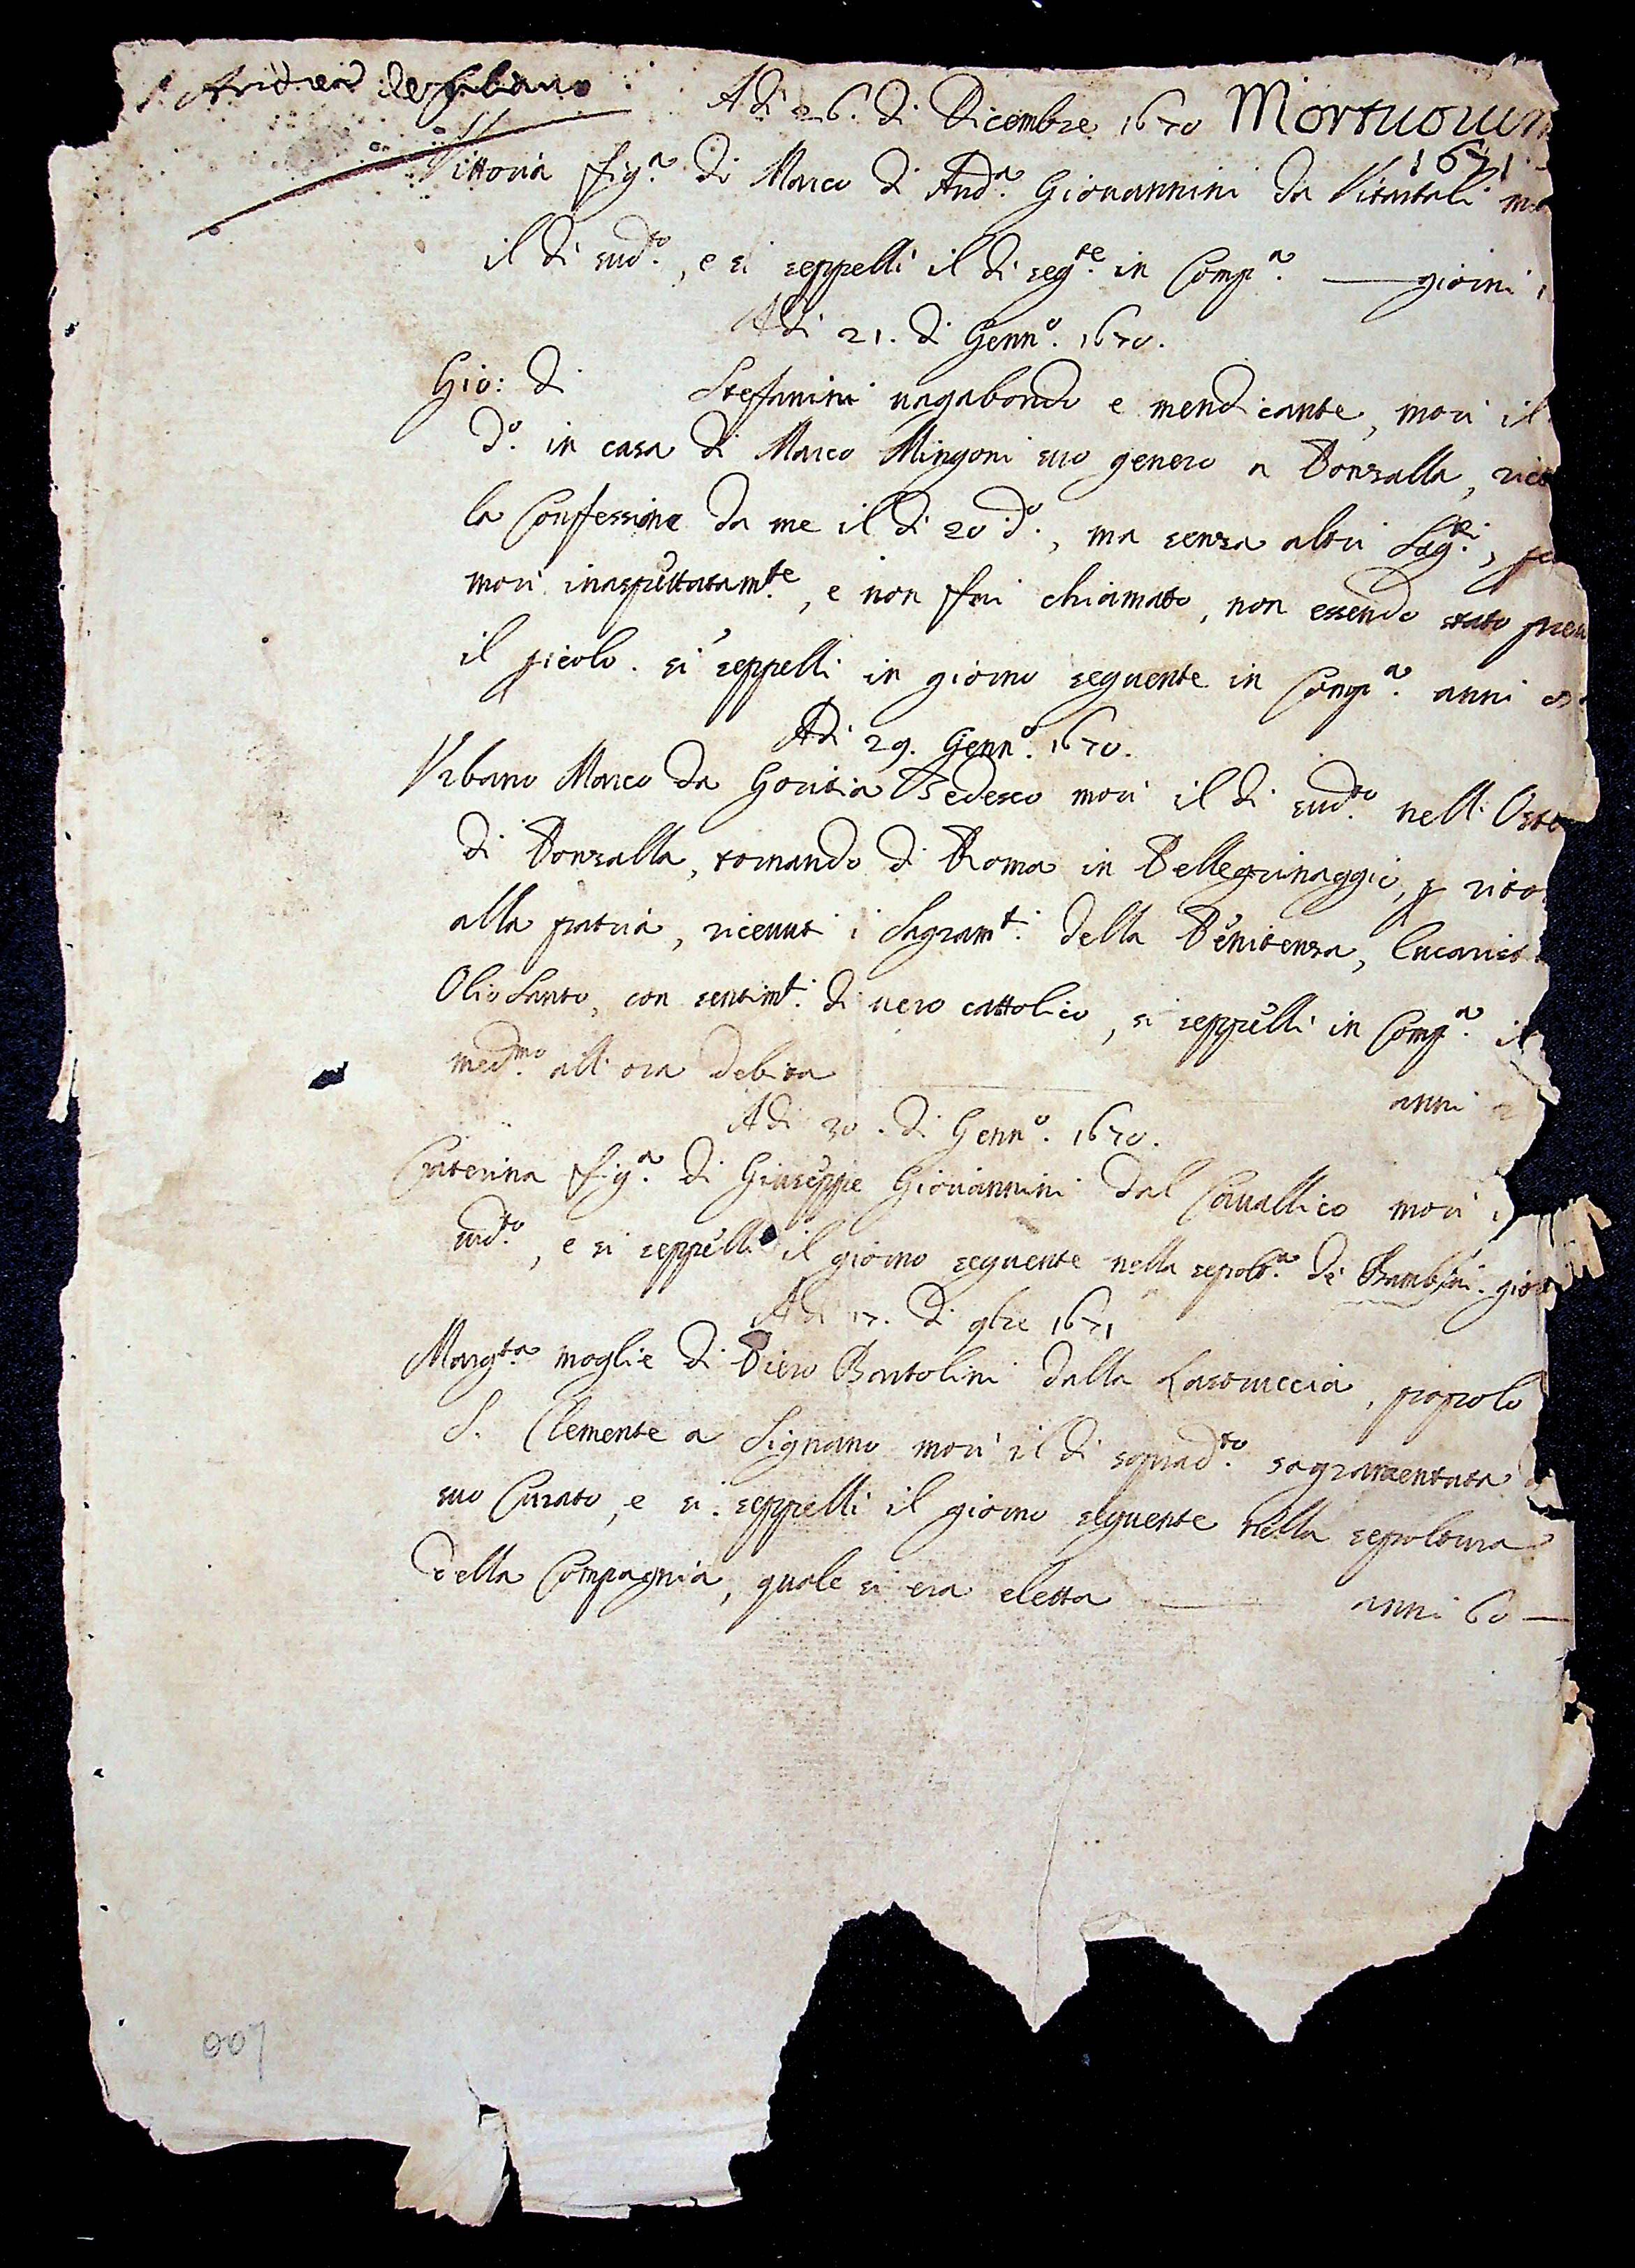 S. Andrea de
Adi 26. di Dicembre 1670 Mortuorum
1671
Vittoria fig.a di Marco di And.a Giouannini da Vitartali
il di sud.to, e si seppelli il di seg.te in Comp.a — giorni
Adi 21. di Genn.o 1670.
Gio: di Stefanini uagabondo e mendicante, mori il
d.o in casa di Marco Mingoni suo genero a Ponzalla,
la Confessione da me il di 20 d.o, ma senza altri Sag.ti,
mori inaspettatam.te, e non fui chiamato, non essendo stato
il . si seppelli in giorno seguente in Comp.a anni
Adi 29. Genn.o 1670.
Vrbano Marco da Goritia Tedesco mori il di sud.to nell'
di Ponzalla, tornando di Roma in Pellegrinaggio, p
alla patria, riceuut i Sagram.ti della Penitenza,
Olio Santo, con sentim.ti di uero cattolico, si seppelli in Comp.a il
med.mo all'ora debita
anni
Adi 30. di Genn.o 1670.
Caterina fig.a di Giuseppe Giouannini dal Cauallico mori
sud.to, e si seppelli il giorno seguente nella sepolt.a de Bambini.
Adi 17. di 9bre 1671
Marg.ta moglie di Piero Bartolini dalla , popolo
S. Clemente a Signano mori il di soprad.to sagramentata
suo Curato, e si seppelli il giorno seguente nella sepoltura
della Compagnia, quale si era eletta — anni 60 —
007